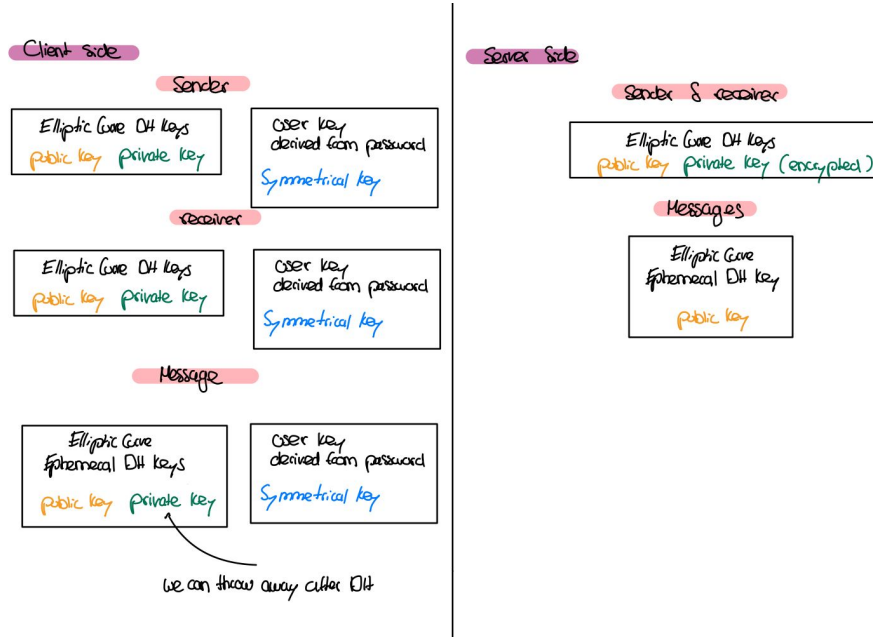 Client side
Sender
Elliptic Curve DH Keys
public key private key
User key
derived from password
Symmetrical key
receiver
Elliptic Curve DH Keys
public key private key
User key
derived from password
Symmetrical key
Message
Elliptic Curve
Ephemecal DH Keys
public key private key
User key
derived from password
Symmetrical key
we can throw away after DH
Server Side
Sender & receiver
Elliptic Curve DH Keys
public key private key (encrypted)
Messages
Elliptic Curve
Ephemecal DH Key
public key